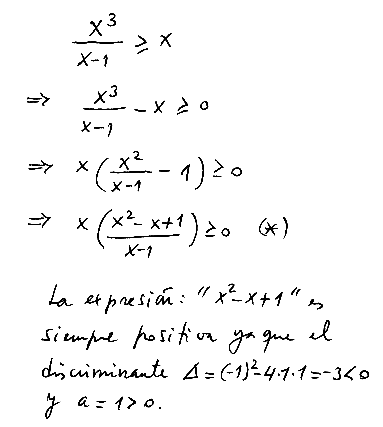 x³/(x-1) ≥ x
⇒ x³/(x-1) - x ≥ 0
⇒ x (x²/(x-1) - 1) ≥ 0
⇒ x ((x²-x+1)/(x-1)) ≥ 0 (*)
La expresión: "x²-x+1" es
siempre positiva ya que el
discriminante Δ=(-1)²-4·1·1=-3<0
y a=1>0.